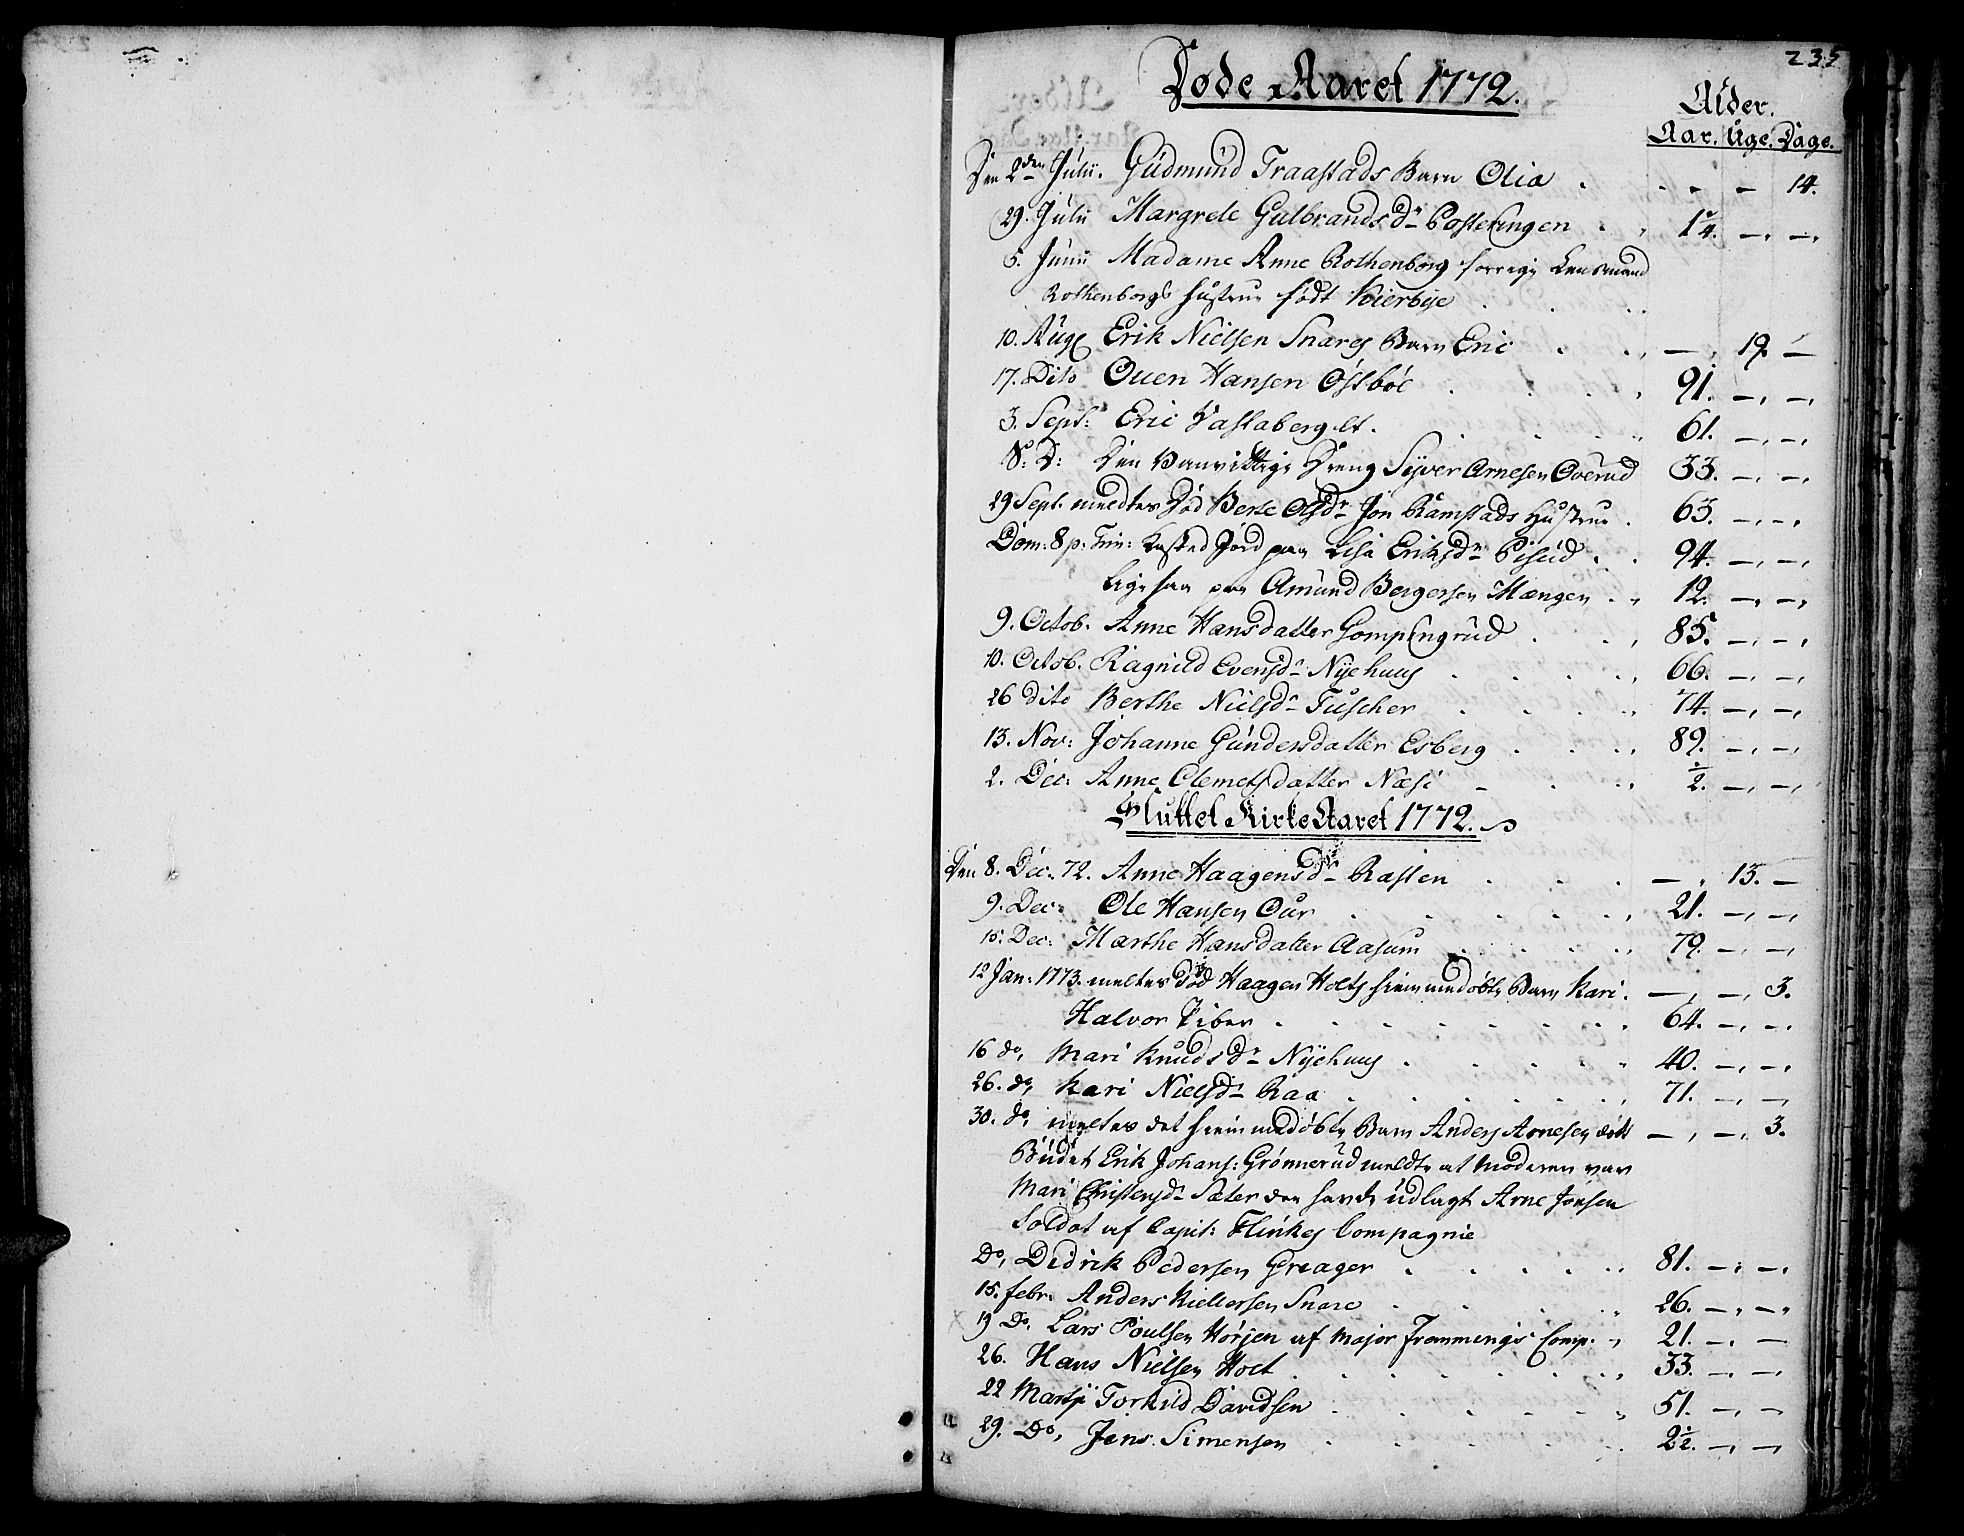 235
Døde Aaret 1772.
Alder.
Aar. Uge. Dage.
Den 2den Julii. Gudmund Traastads Barn Olia . . - - - 14.
29. Julii Margrete Gulbrandsdr Posteringen . . 1/4. -, -,
5. Junii Madame Anne Rothenborg forrige Lensmand
Rothenborgs Hustrue født Kierbye . . .
10. Aug Erik Nielsen Snares Barn Eric . . -, 19 -
17. Dito Ouen Hansen Østbøe . . . 91. -, -,
3. Sept: Eric Haslaberg lt. . . . 61. -, -,
S: D: Den Vanvittige Dreng Syver Arnesen Overud 33. -, -,
29 Sept. meldtes død Berte Olsdr Jon Ramstads Hustrue . 63. -, -,
Dom: 8 p: Trin: Kasted Jord paa Lisa Eriksdr Pisud . . 94. -, -,
ligesaa paa Amund Bergersen Mængen . . 12. -, -,
9. Octob. Anne Hansdatter GompEngrud . . 85. -, -,
10. Octob. Ragnild Evensdr Nyehuus . . . 66. -, -,
26 dito Berthe Nielsdr Tuscher . . . 74. -, -,
13. Nov: Johanne Gundersdatter Esberg . . . 89. -, -,
2. Dec: Anne Clemetsdatter Næse - . . 1/2. -, -,
Sluttet Kirke Aaret 1772.
Den 8. Dec: 72. Anne Haagensdr Rasten . . . -, 13. -
9. Dec: Ole Hansen Our . . . . 21. -, -,
15. Dec: Marthe Hansdatter Aasum . . . 79. -, -,
12 Jan: 1773. meltes død Haagen Holts hiemmedøbte Barn Kari. -, -, 3.
Halvor Piber . . . . 64. -, -.
16 do, Mari Knudsdr Nyehuus . . . . 40. -, -,
26. do, Kari Nielsdr Raa . . . . 71. -, -
30. do, meltes det hiemmedøbte Barn Anders Arnesen dødt -, -, 3.
Budet Erik Johans: Grønnerud meldte at moderen var
Mari Christensdr Sæter der havde udlagt Arne Jonsen
Soldat af Capit: Flinkes Compagnie
Do, Didrik Pedersen Greager . . . . 81. -, -,
15. febr: Anders Kiellersen Snare . . . 26. -, -,
19 Do, Lars Poulsen Hørjen af Major Frommings Comp: . 21. -, -
26. Hans Nielsen Holt . . . . 33. -, -,
22 Martji Torkild Davidsen . . . . 51. -, -
29. Do, Jens Simensen . . . . 2 1/2. -, -,